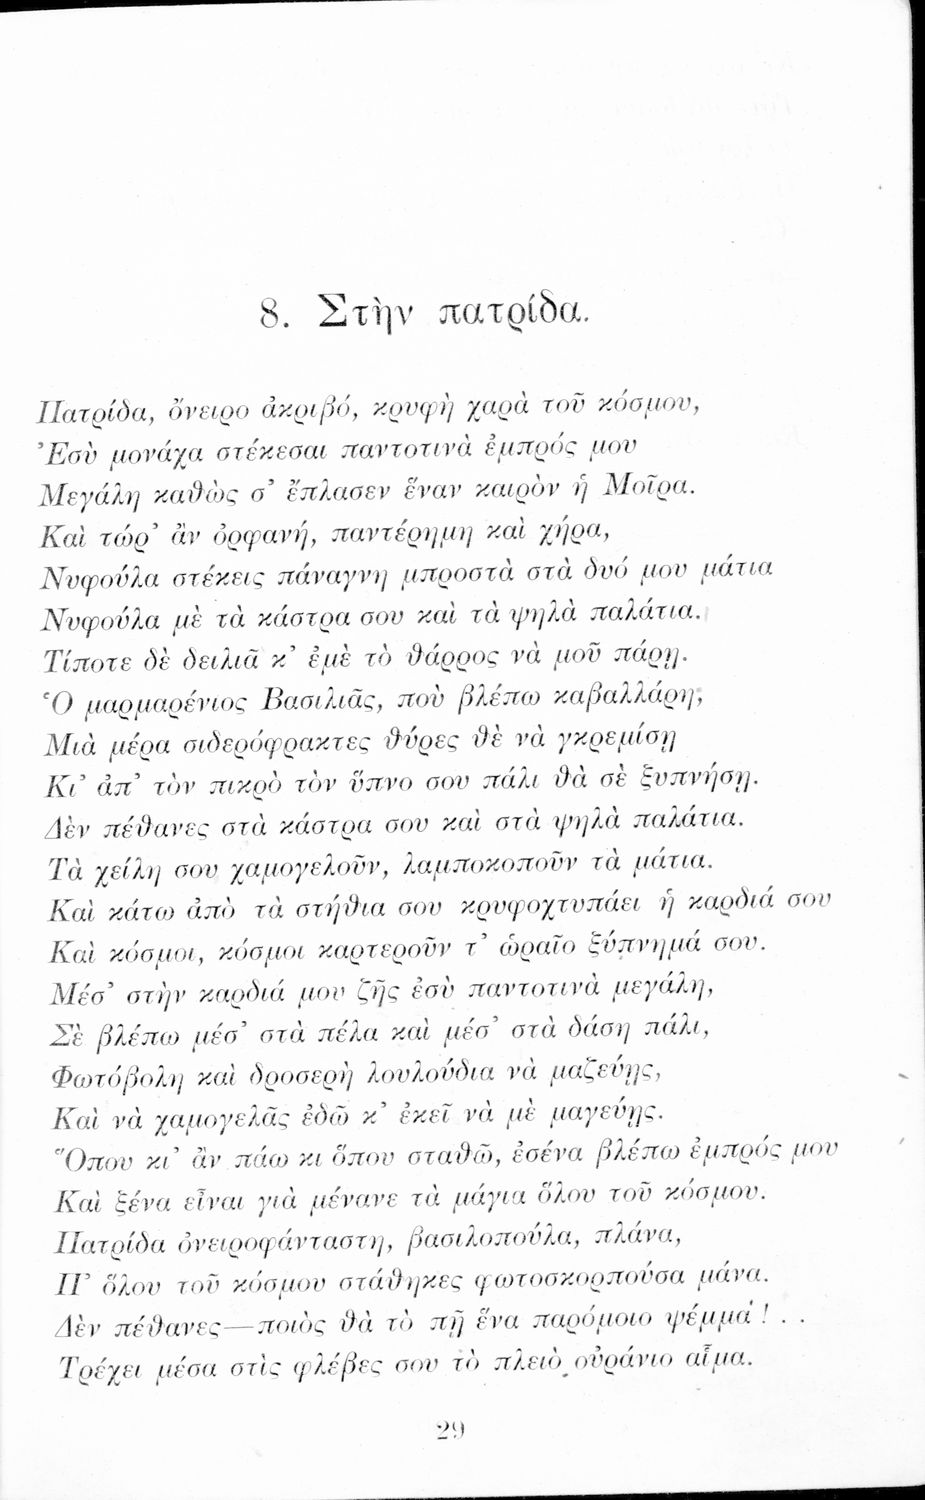 8. Στὴν πατρίδα.
Πατρίδα, ὄνειρο ἀκριβό, κρυφὴ χαρὰ τοῦ κόσμου,
Ἐσὺ μονάχα στέκεσαι παντοτινὰ ἐμπρός μου
Μεγάλη καθὼς σ᾽ ἔπλασεν ἕναν καιρὸν ἡ Μοῖρα.
Καὶ τώρ᾽ ἂν ὀρφανή, παντέρημη καὶ χήρα,
Νυφούλα στέκεις πάναγνη μπροστὰ στὰ δυό μου μάτια
Νυφούλα μὲ τὰ κάστρα σου καὶ τὰ ψηλὰ παλάτια.
Τίποτε δὲ δειλιᾶ κ᾽ ἐμὲ τὸ θάρρος νὰ μοῦ πάρῃ.
Ὁ μαρμαρένιος Βασιλιᾶς, ποὺ βλέπω καβαλλάρη,
Μιὰ μέρα σιδερόφρακτες θύρες θὲ νὰ γκρεμίσῃ
Κι᾽ ἀπ᾽ τὸν πικρὸ τὸν ὕπνο σου πάλι θὰ σὲ ξυπνήσῃ.
Δὲν πέθανες στὰ κάστρα σου καὶ στὰ ψηλὰ παλάτια.
Τὰ χείλη σου χαμογελοῦν, λαμποκοποῦν τὰ μάτια.
Καὶ κάτω ἀπὸ τὰ στήθια σου κρυφοχτυπάει ἡ καρδιά σου
Καὶ κόσμοι, κόσμοι καρτεροῦν τ᾽ ὡραῖο ξύπνημά σου.
Μέσ᾽ στὴν καρδιά μου ζῆς ἐσὺ παντοτινὰ μεγάλη,
Σὲ βλέπω μέσ᾽ στὰ πέλα καὶ μέσ᾽ στὰ δάση πάλι,
Φωτόβολη καὶ δροσερὴ λουλούδια νὰ μαζεύῃς,
Καὶ νὰ χαμογελᾶς ἐδῶ κ᾽ ἐκεῖ νὰ μὲ μαγεύῃς.
Ὅπου κι᾽ ἂν πάω κι ὅπου σταθῶ, ἐσένα βλέπω ἐμπρός μου
Καὶ ξένα εἶναι γιὰ μένανε τὰ μάγια ὅλου τοῦ κόσμου.
Πατρίδα ὀνειροφάνταστη, βασιλοπούλα, πλάνα,
Π᾽ ὅλου τοῦ κόσμου στάθηκες φωτοσκορπούσα μάνα.
Δὲν πέθανες—ποιὸς θὰ τὸ πῇ ἕνα παρόμοιο ψέμμα! . .
Τρέχει μέσα στὶς φλέβες σου τὸ πλειὸ οὐράνιο αἷμα.
29